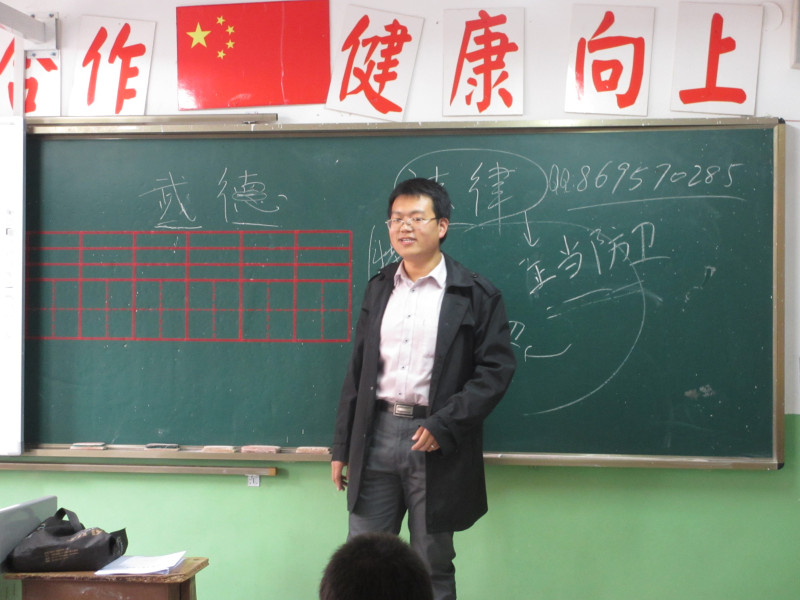 合作 健康 向上
武德
法律
QQ:869570285
正当防卫
卫